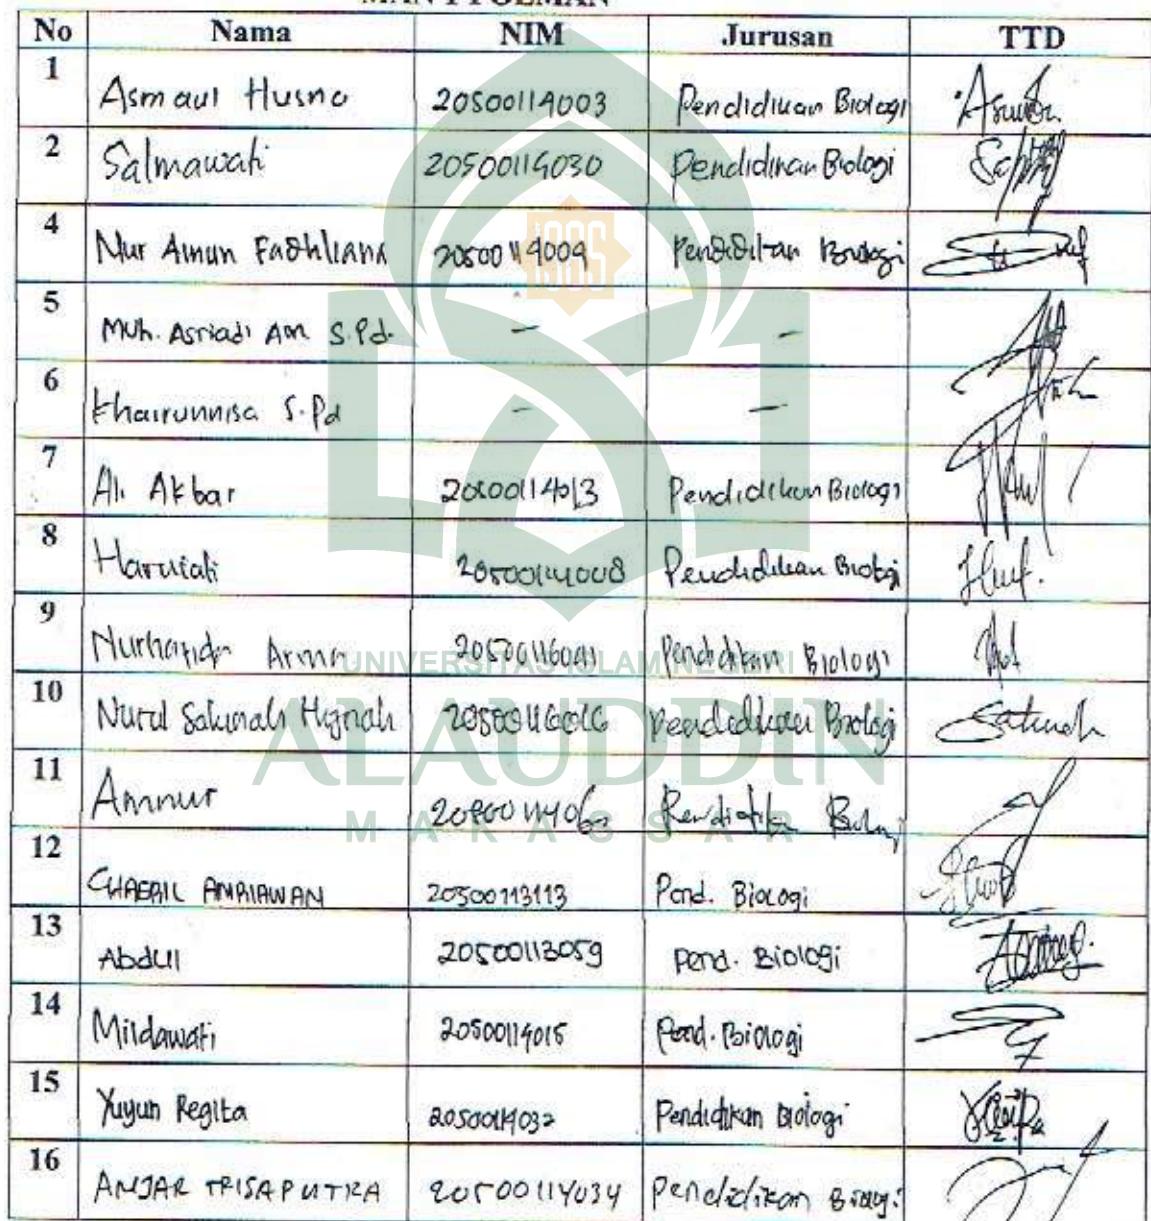 MAN 1 POLMAN
No Nama NIM Jurusan TTD
1 Asmaul Husna 20500114003 Pendidikan Biologi
2 Salmawati 20500114030 Pendidikan Biologi
4 Nur Ainun Fadhliana 20500114009 Pendidikan Biologi
5 Muh. Asriadi Am S.Pd. - -
6 Khairunnisa S.Pd - -
7 Ali Akbar 20500114013 Pendidikan Biologi
8 Haruiati 20500114008 Pendidikan Biologi
9 Pendidikan Biologi
UNIVERSITAS ISLAM NEGERI
10 Nurul Sakinah 20500116016 Pendidikan Biologi
ALAUDDIN
11 Pendidikan Biologi
MAKASSAR
12 CHAERIL AMRIAWAN 20500113113 Pend. Biologi
13 Abdul 20500113059 Pend. Biologi
14 Mildawati 20500114015 Pend. Biologi
15 Yuyun Regita 20500114032 Pendidikan Biologi
16 ANJAR TRISAPUTRA 20500114034 Pendidikan Biologi